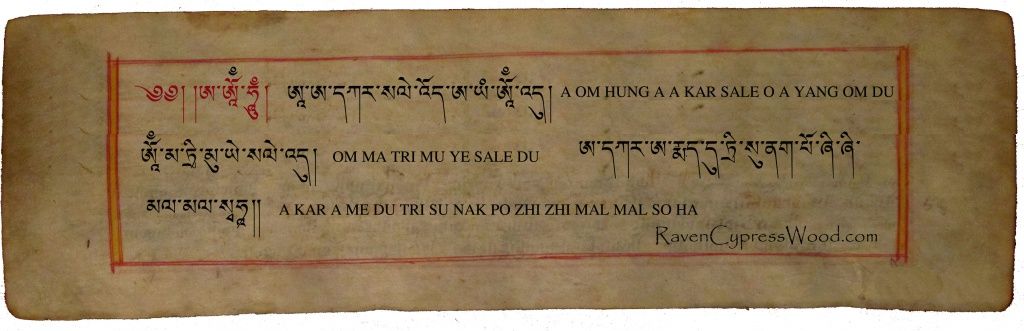 ༄༅། །ཨ་ཨོཾ་ཧཱུྃ། ཨཱ་ཨ་དཀར་ས་ལེ་འོད་ཨ་ཡཾ་ཨོཾ་འདུ། A OM HUNG A A KAR SALE O A YANG OM DU
ཨོཾ་མ་ཏྲི་མུ་ཡེ་ས་ལེ་འདུ། OM MA TRI MU YE SALE DU ཨ་དཀར་ཨ་རྨད་དུ་ཏྲི་སུ་ནག་པོ་ཞི་ཞི་
མལ་མལ་སྭཱཧཱ།། A KAR A ME DU TRI SU NAK PO ZHI ZHI MAL MAL SO HA
RavenCypressWood.com